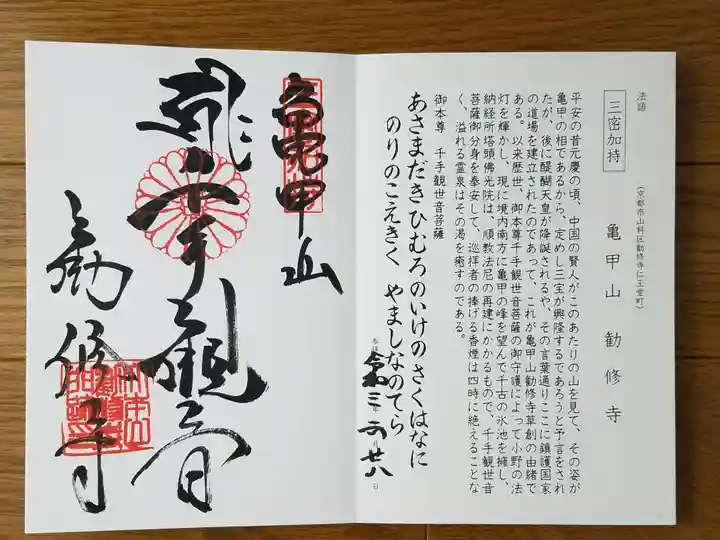 法語
三密加持
亀甲山 勧修寺
(京都市山科区勧修寺仁王堂町)
平安の昔元慶の頃、中国の賢人がこのあたりの山を見て、その姿が
亀甲の相であるから、定めし三宝が興隆するであろうと予言をされ
たが、後に醍醐天皇が降誕されるや、その言葉通りここに鎮護国家
の道場を建立されたのであって、これが亀甲山勧修寺草創の由緒で
ある。以来歴世、御本尊千手観世音菩薩の御守護によって小野の法
灯を輝かし、現に境内南方に亀甲の峰を望んで千古の氷池を擁し、
納経所塔頭佛光院は、順教法尼の再建にかかるもので、千手観世音
菩薩御分身を奉安して、巡拝者の捧げる香煙は四時に絶えることな
く、溢れる霊泉はその渇を癒すのである。
御本尊 千手観世音菩薩
あさまだきひむろのいけのさくはなに
のりのこえきく やましなのてら
令和三年二月廿八日
亀甲山
千手観音
勧修寺